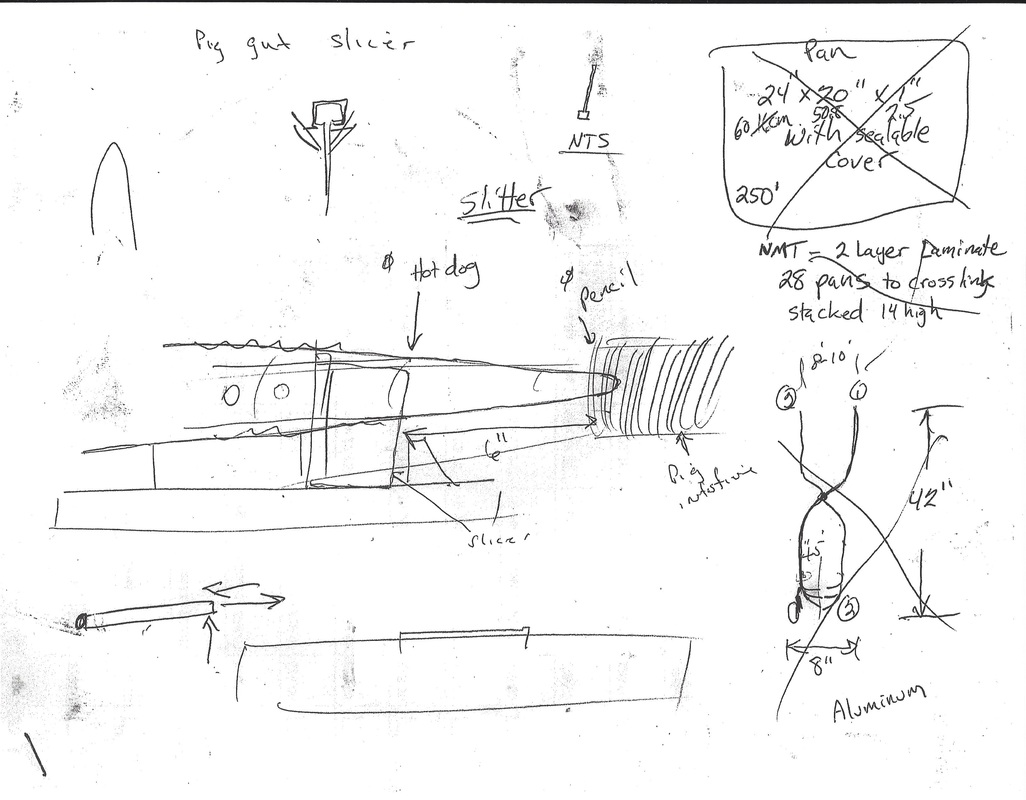 Pig gut slicer
NTS
Slitter
Pan
24" x 20" x 1"
60 cm 50.8 2.5
With sealable
Cover
250'
NMT - 2 Layer Laminate
28 pans to crosslink
stacked 14 high
ø Hot dog
ø Pencil
8'-10'
② ①
6"
Pig
intestine
slicer
42"
②
8"
Aluminum